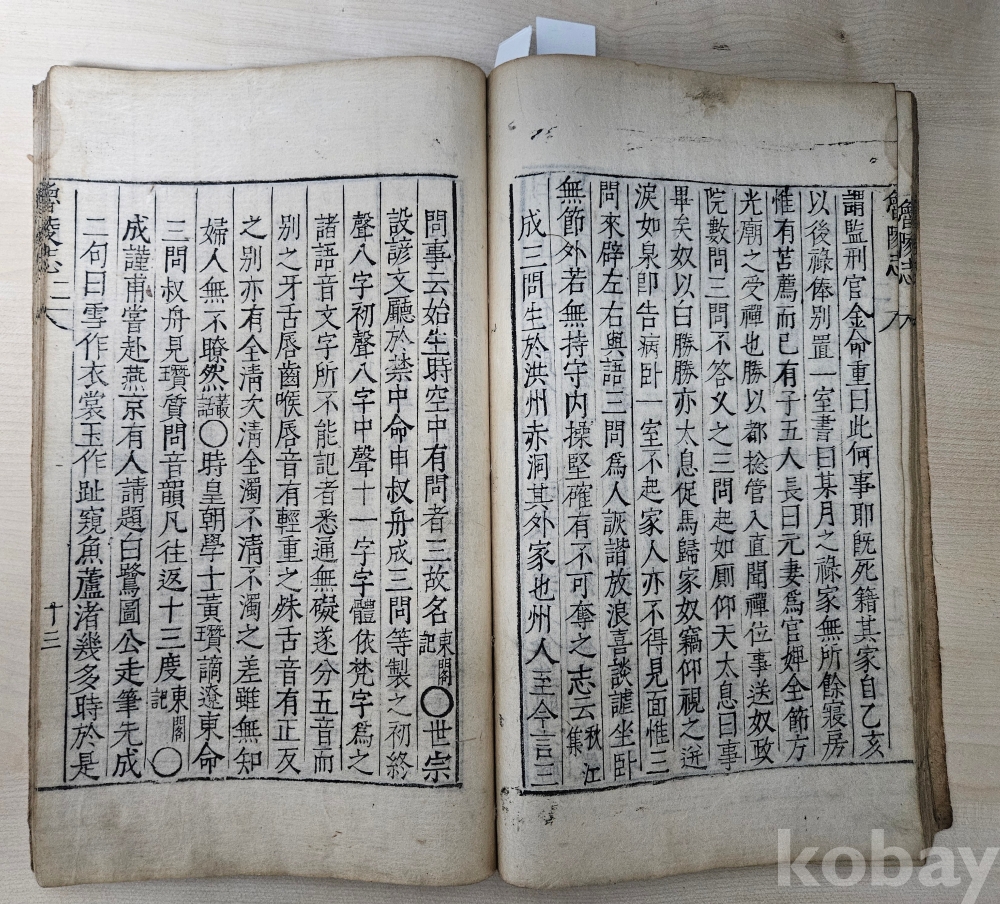 謂監刑官金命重曰此何事耶旣死籍其家自乙亥
以後祿俸別置一室書曰某月之祿家無所餘寢房
惟有苫薦而已有子五人長曰元妻爲官婢全節方
光廟之受禪也勝以都捴管入直聞禪位事送奴政
院數問三問不答乂之三問起如厠仰天太息曰事
畢矣奴以白勝勝亦太息促馬歸家奴竊仰視之迸
淚如泉卽告病卧一室不起家人亦不得見面惟三
問來辟左右與語三問爲人詼諧放浪喜談謔坐卧
無節外若無持守内操堅確有不可奪之志云秋江集
成三問生於洪州赤洞其外家也州人至今言三
問事云始生時空中有問者三故名東閣記〇世宗
設諺文廳於禁中命申叔舟成三問等製之初終
聲八字初聲八字中聲十一字字體依梵字爲之
諸語音文字所不能記者悉通無礙遂分五音而
別之牙舌唇齒喉唇音有輕重之殊舌音有正反
之別亦有全淸次淸全濁不淸不濁之差雖無知
婦人無不瞭然叢話〇時皇朝學士黃瓚謫遼東命
三問叔舟見瓚質問音韻凡往返十三度東閣記〇
成謹甫嘗赴燕京有人請題白鷺圖公走筆先成
二句曰雪作衣裳玉作趾窺魚蘆渚幾多時於是
魯陵志 二
十三
魯陵志
kobay